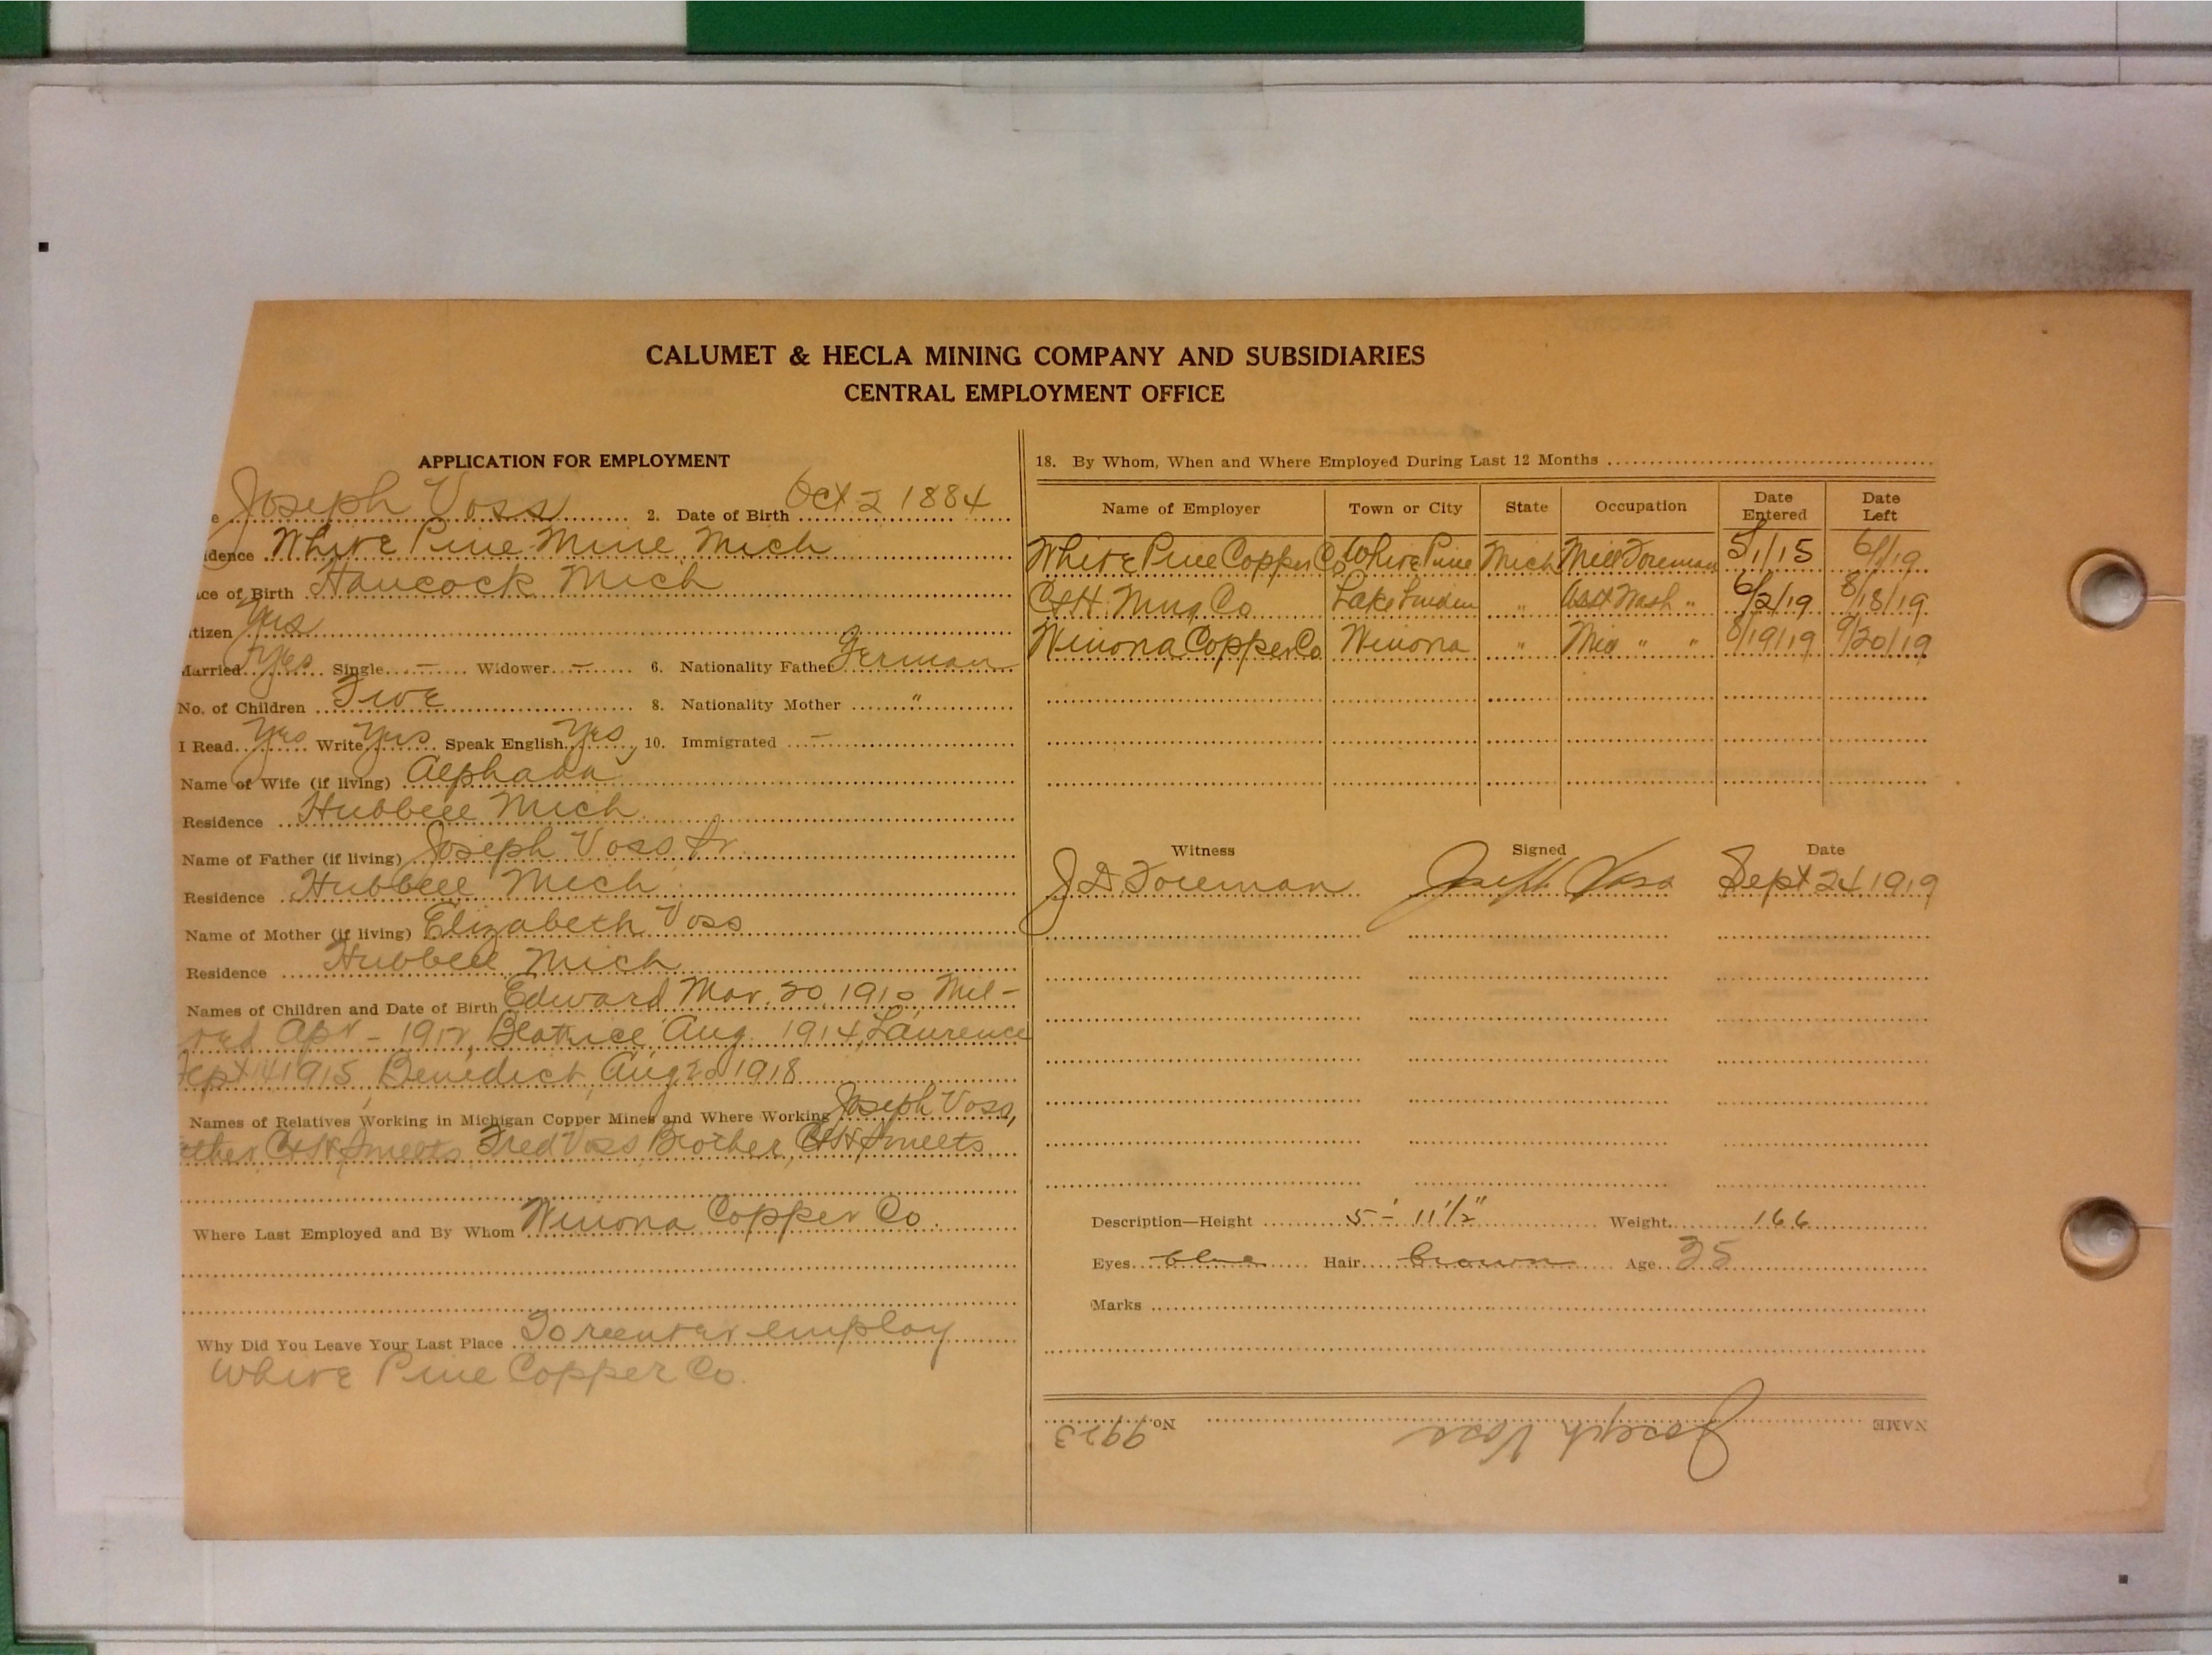 CALUMET & HECLA MINING COMPANY AND SUBSIDIARIES
CENTRAL EMPLOYMENT OFFICE
APPLICATION FOR EMPLOYMENT
e Joseph Voss 2. Date of Birth Oct 2 1884
idence White Pine Mine Mich
ace of Birth Hancock Mich
itizen Yes
Married Yes Single — Widower — 6. Nationality Father German
No. of Children Five 8. Nationality Mother "
I Read Yes Write Yes Speak English Yes, 10. Immigrated —
Name of Wife (if living)
Residence Hubbell Mich
Name of Father (if living) Joseph Voss Sr.
Residence Hubbell Mich.
Name of Mother (if living) Elizabeth Voss
Residence Hubbell Mich
Names of Children and Date of Birth Edward Mar. 20, 1910 Mil-
red Apr - 1912, Beatrice Aug. 1914, Laurence
Sept 14 1915, Benedict, Aug 20 1918
Names of Relatives Working in Michigan Copper Mines and Where Working Joseph Voss,
ather, C&H Smelts, Fred Voss, Brother, C&H Smelts
Where Last Employed and By Whom Winona Copper Co.
Why Did You Leave Your Last Place To reenter employ
White Pine Copper Co.
18. By Whom, When and Where Employed During Last 12 Months
Name of Employer Town or City State Occupation Date Entered Date Left
White Pine Copper Co White Pine Mich Mill Foreman 5/1/15 6/1/19
C&H. Mng. Co. Lake Linden " Asst Wash " 6/2/19 8/18/19
Winona Copper Co Winona " Mill " " 8/19/19 9/20/19
Witness Signed Date
J. D. Foreman Joseph Voss Sept 24 1919
Description—Height 5-' 11 1/2" Weight 166
Eyes blue Hair brown Age 35
Marks
NAME Joseph Voss No. 9923